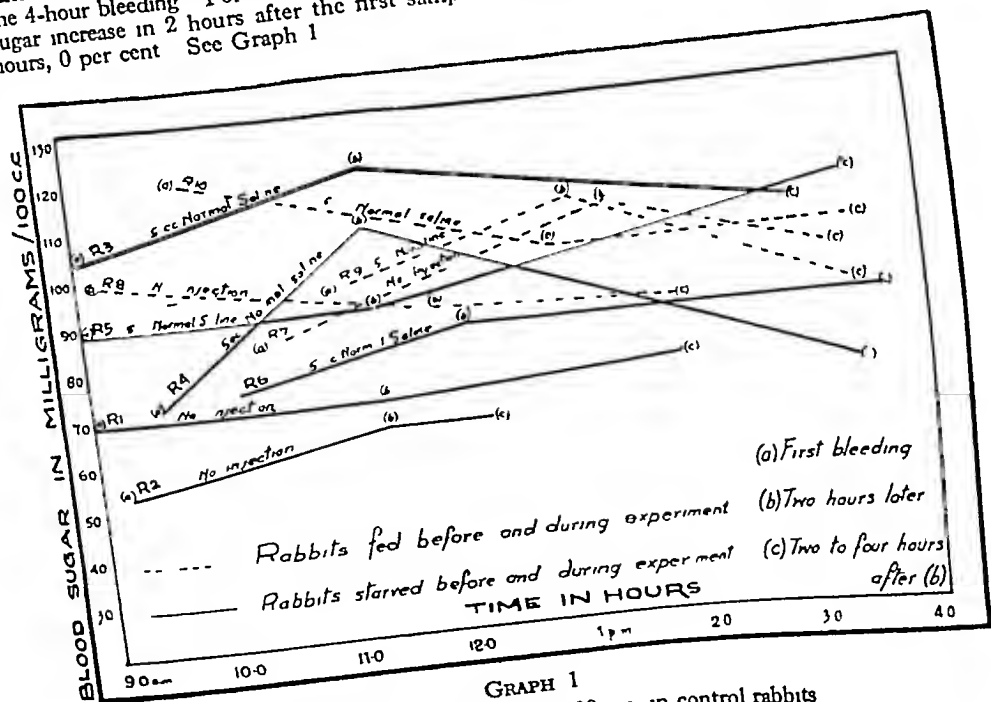 the 4-hour bleeding
sugar increase in 2 hours after the first
hours, 0 per cent See Graph 1
BLOOD SUGAR IN MILLIGRAMS/100CC
130
120
110
100
90
80
70
60
50
40
30
(a) R10
(a) R3 5 cc Normal Saline (b) (c)
Normal saline (b) (c)
(a) R9 5 (b) (c)
R8 injection (b) (c)
(a) R5 Normal S line (b) (c)
(a) R7 No inject (b) (c)
(a) R4 5cc No mal saline (b)
R6 5 c Norm l Saline (b)
(a) R1 No njection (b (c)
(a) R2 No injection (b) (c)
(a) First bleeding
(b) Two hours later
(c) Two to four hours
after (b)
Rabbits fed before and during experiment
Rabbits starved before and during exper ment
TIME IN HOURS
9 0 am 10-0 11-0 12 0 1 pm 2 0 3 0 4 0
GRAPH 1
in control rabbits